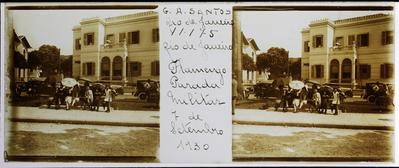 G. A. SANTOS
Rio de Janeiro
V1175
Rio de Janeiro
Flamengo
Parada
Militar
7 de
Setembro
1930